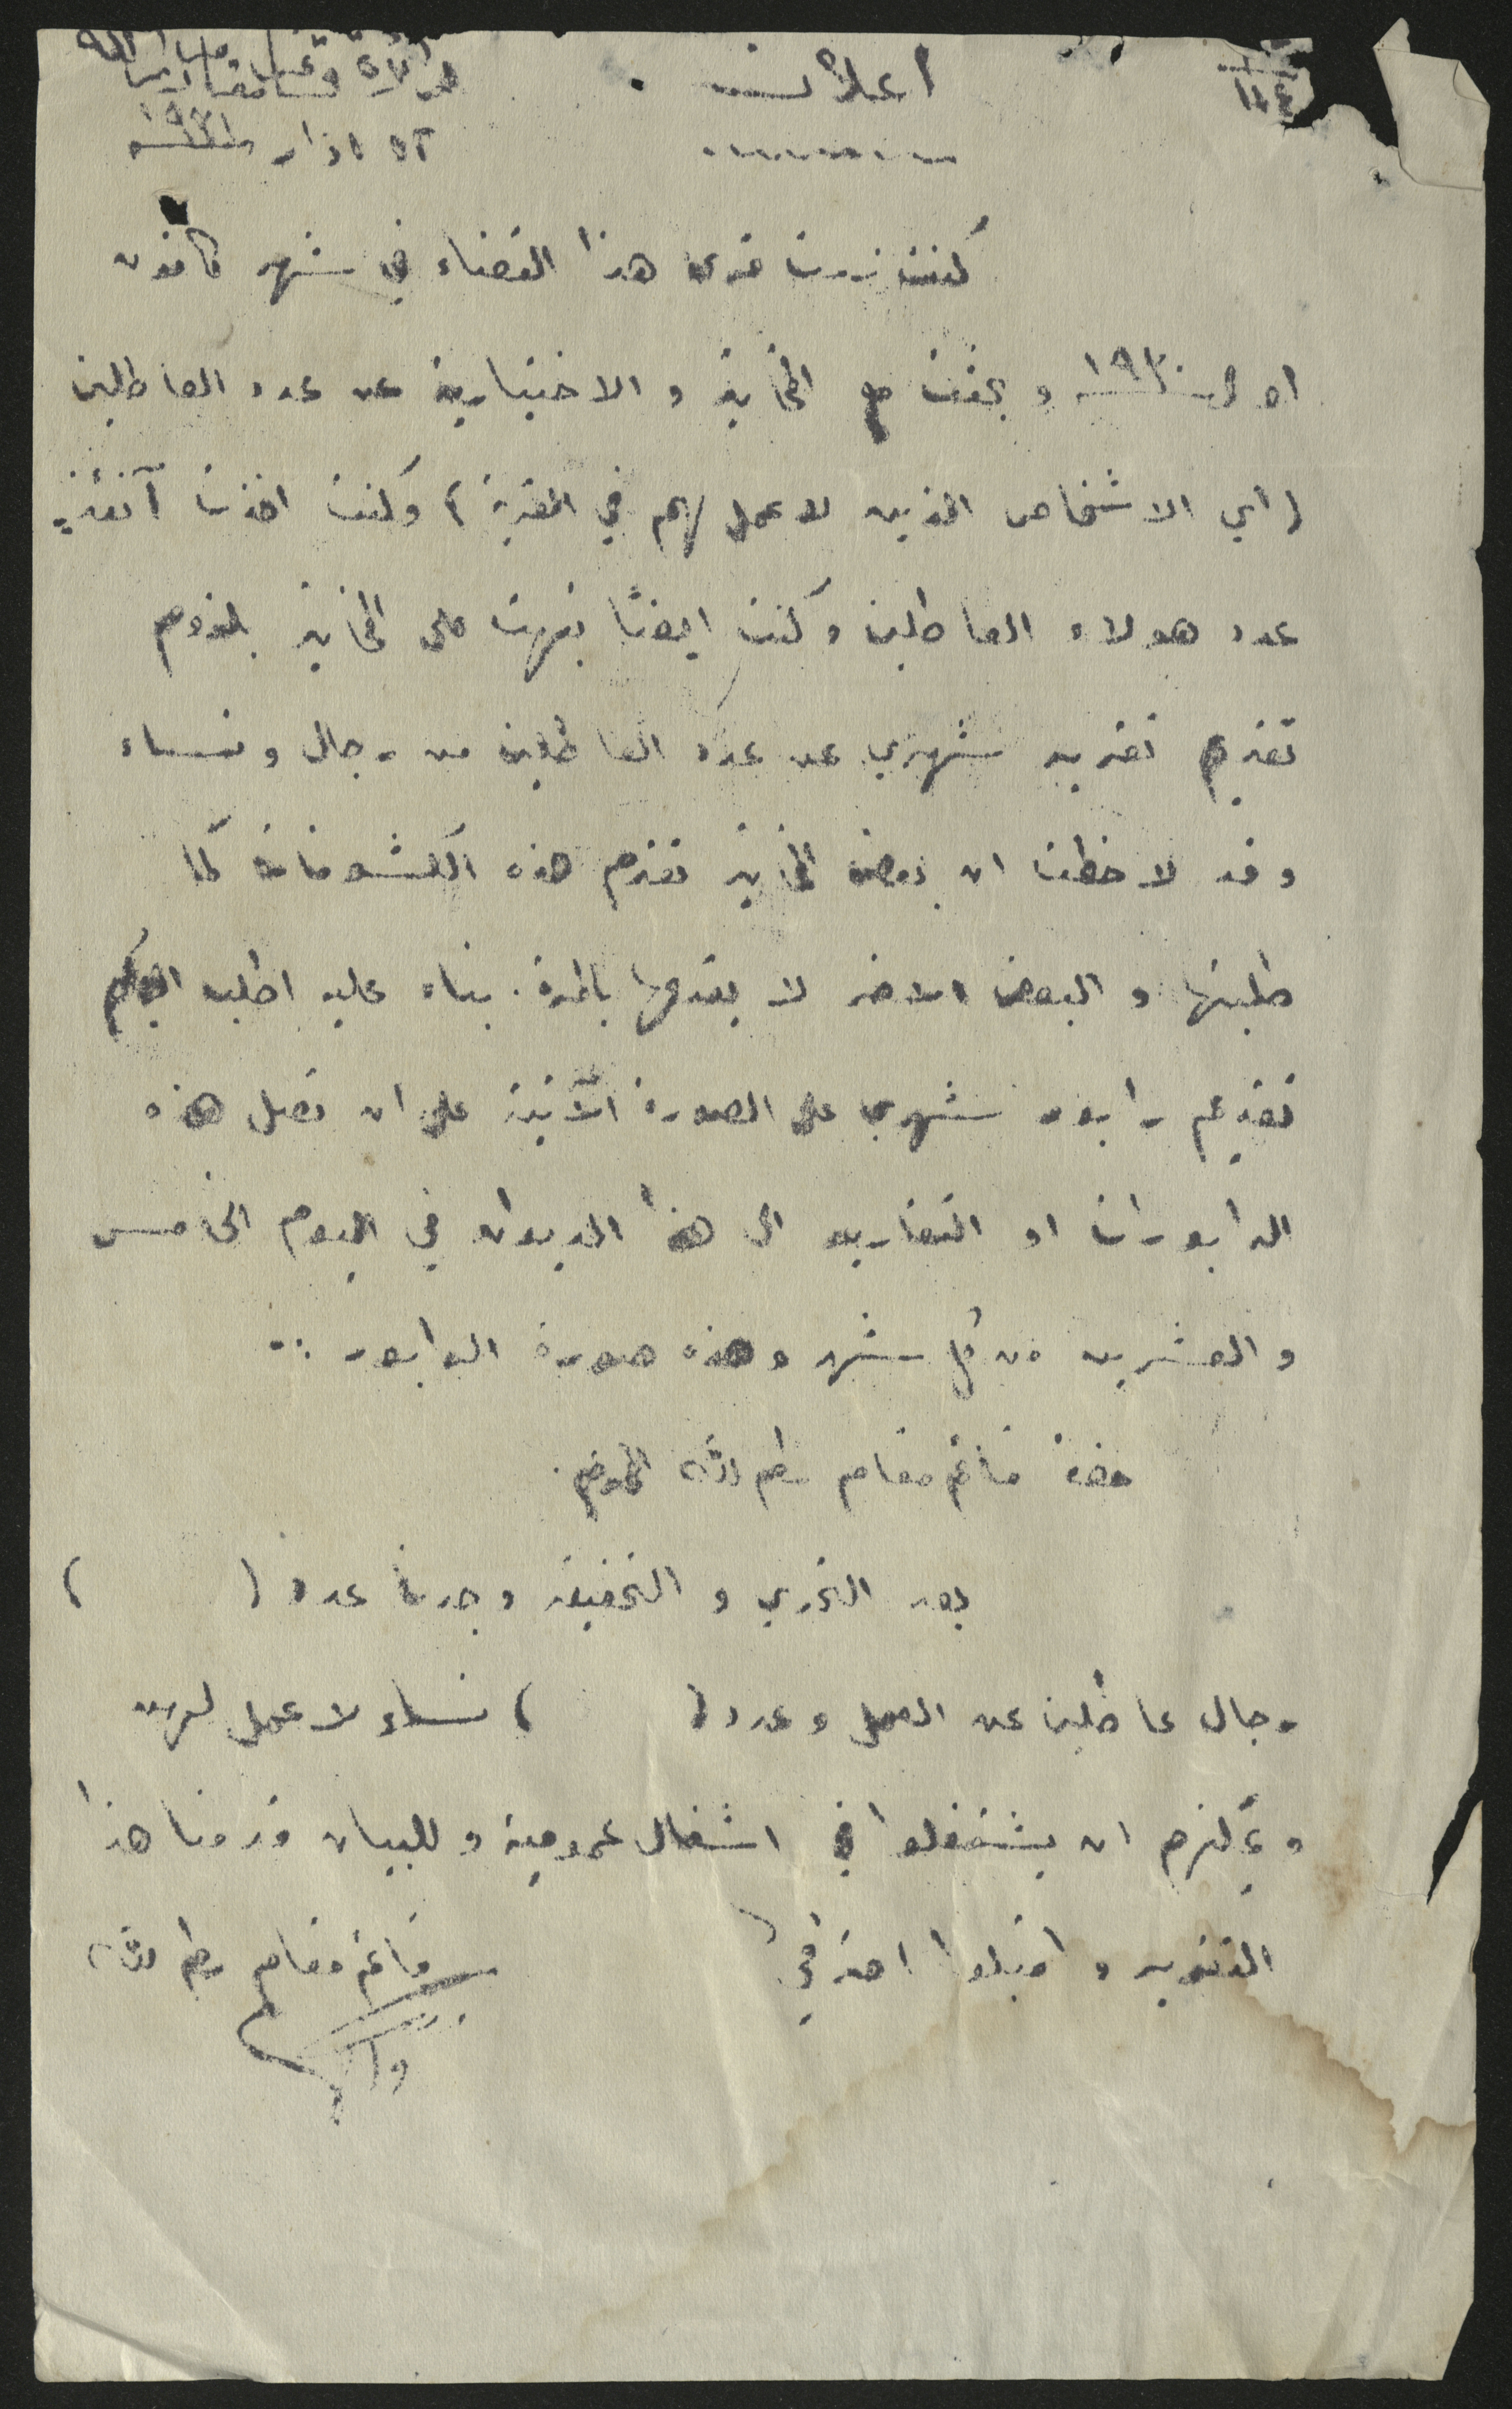 اعلان
١٤٤
قائمقامية رام الله
٢٥ اذار سنة ١٩٣١
كنت زرت قرى هذا القضاء في شهر كانون
اول سنة ١٩٣٠ وبحثت مع المخاتير والاختيارية عن عدد العاطلين
(اي الاشخاص الذين لا عمل لهم في القرية) وكنت اخذت آنئذٍ
عدد هولاء العاطلين وكنت ايضًا نبهت على المخاتير بلزوم
تقديم تقرير شهري عن عدد العاطلين من رجال ونساء
وقد لاحظت ان بعض المخاتير تقدم هذه الكشوفات كما
طلبتها والبعض الاخر لا يقدمها بالمرة. بناء عليه اطلب اليكم
تقديم رابور شهري على الصورة الآتية على ان تصل هذه
الرابورات او التقارير الى هذا الديوان في اليوم الخامس
والعشرين من كل شهر وهذه صورة الرابور :-
حضرة قائمقام رام الله المحترم.
بعد التحري والتحقيق وجدنا عدد (        )
رجال عاطلين عن العمل وعدد (        ) نساء لا عمل لهن
ويمكنهم ان يشتغلوا في اشغال عمومية وللبيان قدمنا هذا
التقرير واقبلوا احترامي
قائمقام رام الله